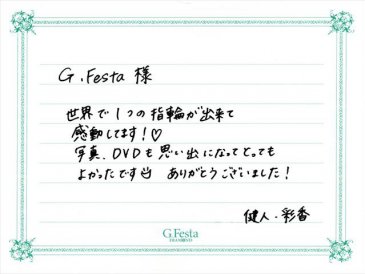 G.Festa 様
世界で1つの指輪が出来て
感動してます!♡
写真、DVDも思い出になってとっても
よかったです ありがとうございました!
健人・彩香
G.Festa
DIAMOND